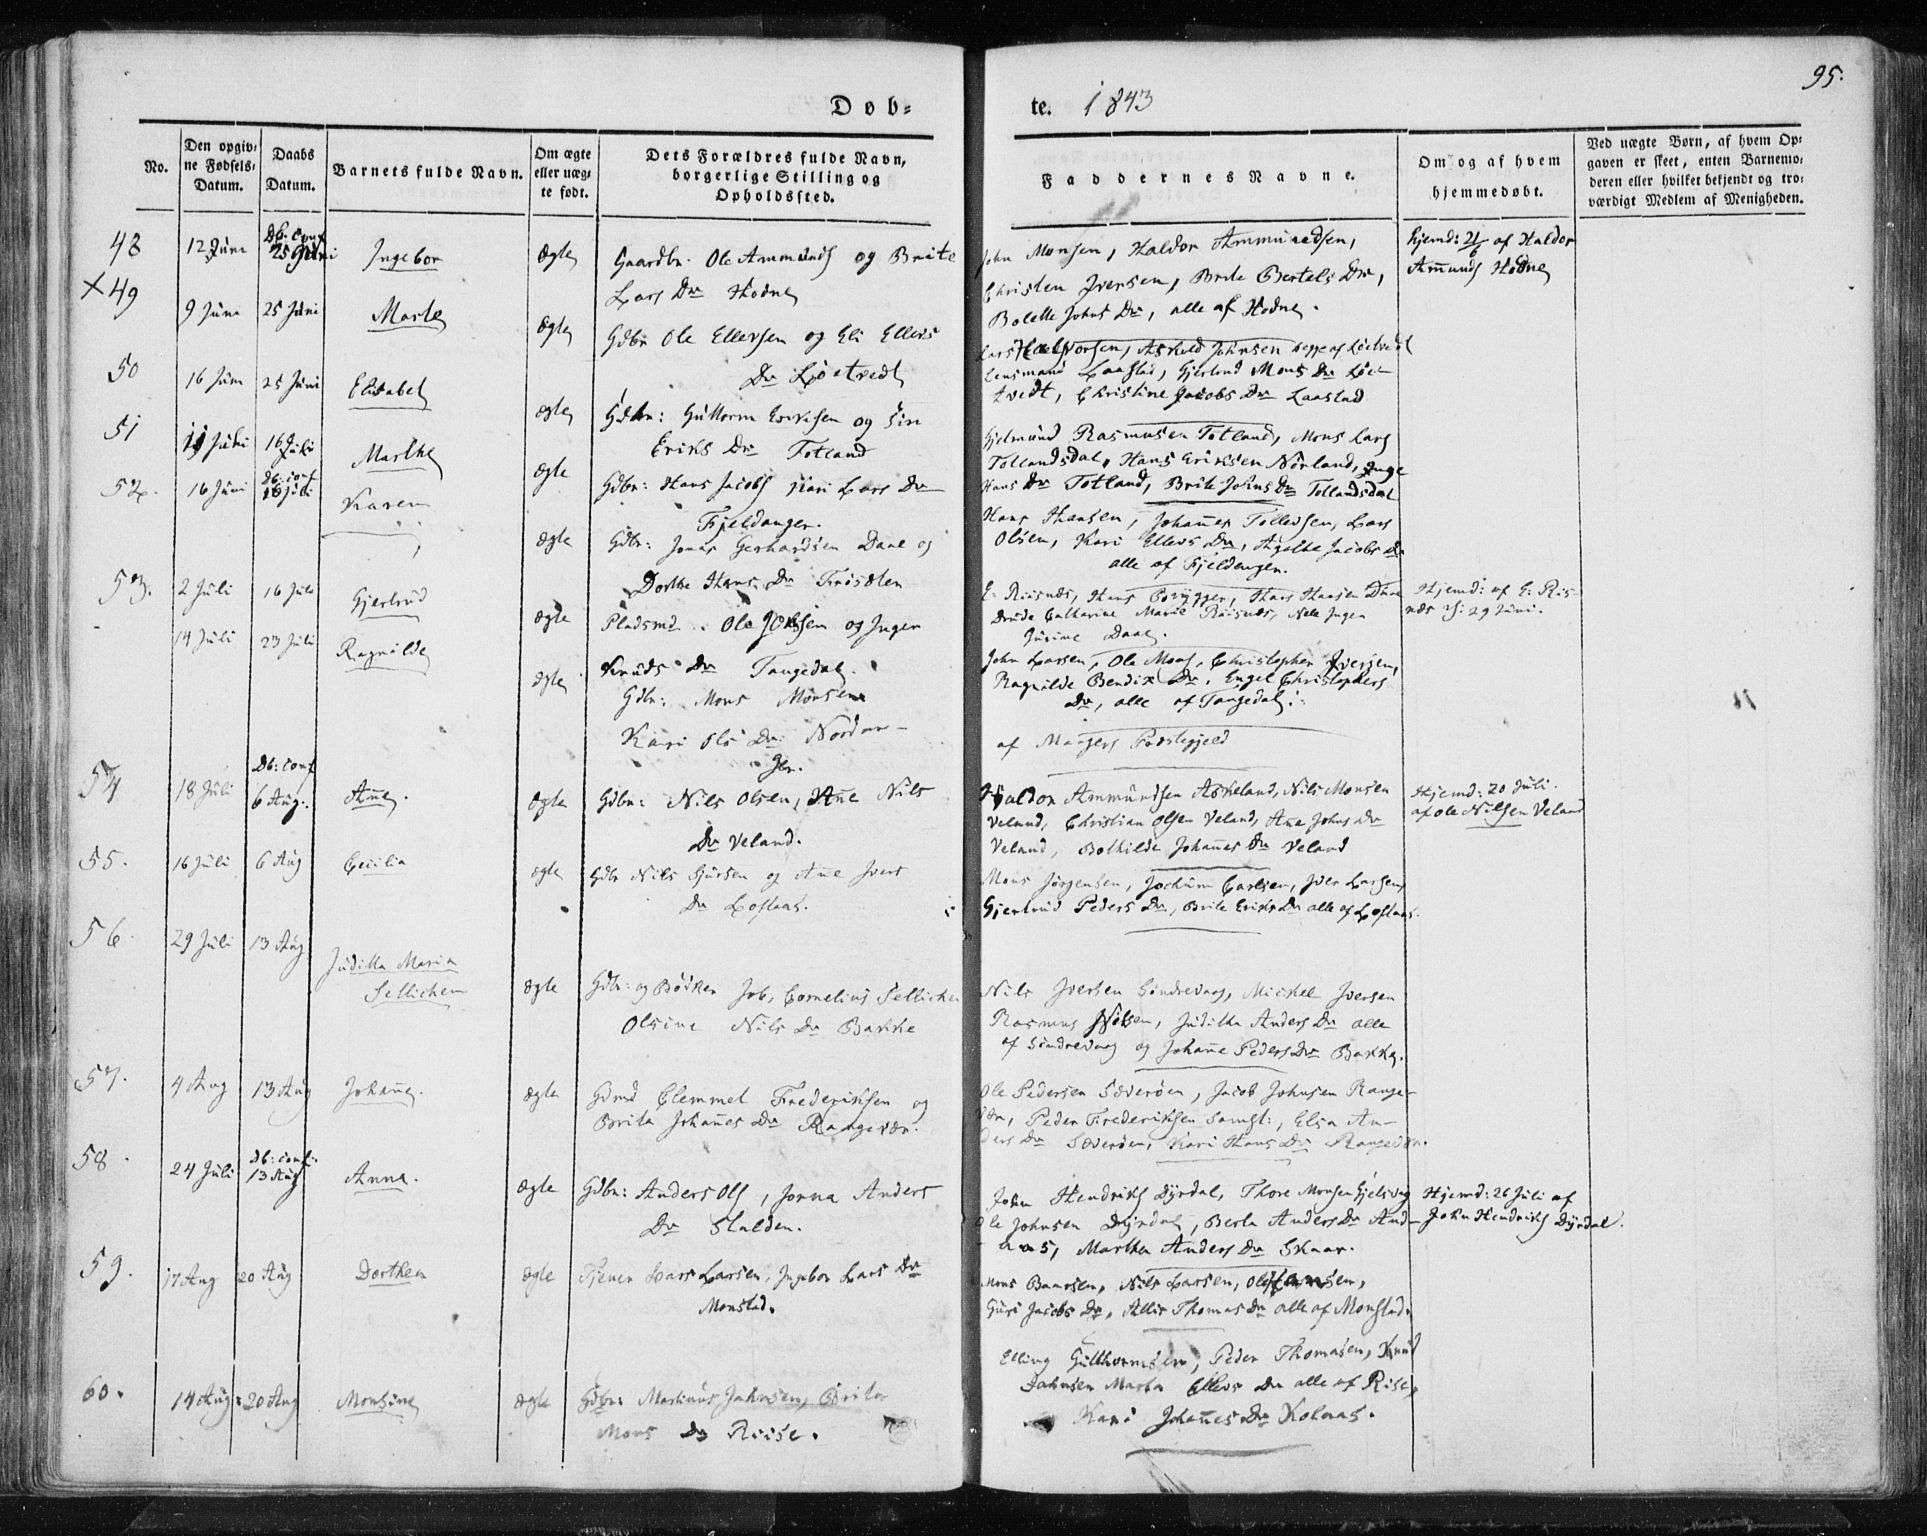 95.
Døb-
te. 1843
No.
Den opgiv-
ne Fødsels-
Datum.
Daabs
Datum.
Barnets fulde Navn.
Om ægte
eller uæg-
te født.
Dets Forældres fulde Navn,
borgerlige Stilling og
Opholdssted.
Faddernes Navne.
Om og af hvem
hjemmedøbt.
Ved uægte Børn, af hvem Op-
gaven er skeet, enten Barnemo-
deren eller hvilket bekjendt og tro-
værdigt Medlem af Menigheden.
48 12 Juni Db: conf
25 Juni Ingebor Ægte Gaardbr. Ole Ammunds og Brite
Lars Dr Hodne
John Monsen, Haldor Ammundsen,
Christen Iversen, Brite Bertels Dr,
Bolette Johns Dr, alle af Hodne.
Hjemd: 21/6 af Haldor
Amunds Hodne
X 49 9 Juni 25 Juni Marte Ægte Gdbr Ole Ellevsen og Eli Ellevs
Dr Løetvedt
Lars Halvorsen, Askild Johnsen begge af Løetvedt
Lensmand Laastad, Gjertrud Mons Dr Løe-
tvedt, Christine Jacobs Dr Laastad
50 16 Juni 25 Juni Elisabet Ægte Gdbr: Guttorm Eriksen og Siri
Eriks Dr Totland
Gjelmund Rasmusen Totland, Mons Lars
Totlandsdal, Hans Eriksen Nörland, Inge
Hans Dr Totland, Brite Johns Dr Totlandsdal
51 11 Juni 16 Juli Marthe Ægte Gdbr: Hans Jacobs Kari Lars Dr
Fjeldanger.
Hans Hansen, Johannes Tollevsen, Lars
Olsen, Kari Ellevs Dr, Agathe Jacobs Dr
alle af Fjeldanger.
52. 16 Juni Db: conf
16 Juli Karen Ægte Gdbr: Jonas Gerhardsen Daae og
Dorthe Hans Dr Frisølen
E. Riisnæs, Hans Hansen Daae
Drude Catharine Marie Riisnæs, Nele Inger
Jusine Daae.
Hjemd: af E. Ris-
næs d: 29 Juni.
53. 2 Juli 16 Juli Gjertrud Ægte Pladsmd. Ole og Inger
Knuds Dr Tangedal.
John Larsen, Ole Mons, Christopher Iversen,
Ragnilde Bendix Dr, Engel Christophers
Dr, alle af Tangedal.
14 Juli 23 Juli Ragnilde Ægte Gdbr: Mons Monsen
Kari Ols Dr Nordan-
ger.
af Mangers Præstegjeld
54 18 Juli Db: conf
6 Aug. Ane. Ægte Gdbr: Nils Olsen, Ane Nils
Dr Veland.
Haldor Ammundsen Askeland, Nils Monsen
Veland, Christian Olsen Veland, Ane Johns Dr
Veland, Bothilde Johannes Dr Veland
Hjemd: 20 Juli.
af Ole Nilsen Veland
55. 16 Juli 6 Aug Cecilia Ægte Gdbr Nils Sjursen og Ane Ivers
Dr Loftaas.
Mons Jørgensen, Jochum Carlsen, Iver Larsen,
Gjertrud Peders Dr, Brite Eriks Dr alle af Loftaas.
56. 29 Juli 13 Aug Juditta Maria
Sellichen Ægte Gdbr: og Bödker Job, Cornelius Sellichen
Olsine Nils Dr Bakke
Nils Iversen Söndrevaag, Mickel Iversen
Rasmus Nilsen, Juditha Anders Dr alle
af Söndrevaag og Johanne Peders Dr Bakke.
57. 4 Aug 13 Aug Johanne. Ægte Gdmd Clemmet Frederiksen og
Brita Johannes Dr Rangevær.
Ole Pedersen Sæverøen, Jacob Johnsen Range-
vær, Peder Frederiksen samst:, Elsa An-
ders Dr Sæverøen, Kari Hans Dr Rangevær.
58. 24 Juli Db: conf:
13 Aug Anna. Ægte Gdbr: Anders Ols, Jorna Anders
Dr Stalden.
John Hendriks Dyrdal, Thore Monsen Gjelsvag
Ole Johnsen Dyrdal, Berta Anders Dr And-
aas, Martha Anders Dr Skaar.
Hjemd: 26 Juli af
John Hendriks Dyrdal.
59. 17 Aug 20 Aug Dorthea Ægte Tjener Lars Larsen, Ingebor Lars Dr
Monstad.
Mons Baarsen, Nils Larsen, Ole Hansen,
Guri Jacobs Dr, Allis Thomas Dr alle af Monstad.
60. 14 Aug: 20 Aug Monsine Ægte Gdbr: Martinus Johnsen, Brita
Mons Dr Riise.
Elling Gutthormsen, Peder Thomasen, Knud
Johnsen Marta Ellevs Dr alle af Rise,
Kari Johannes Dr Kolaas.